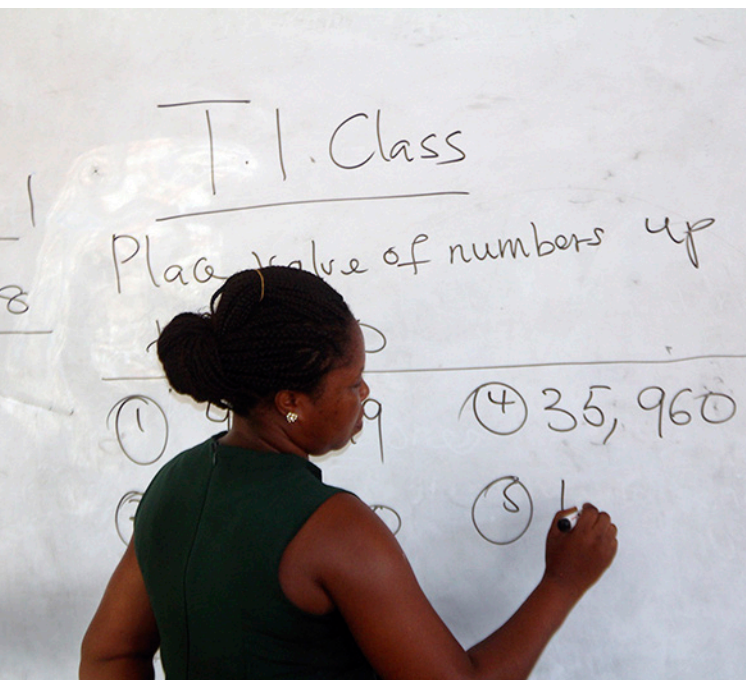 T.1. Class
1
Place value of numbers up
8
1 9 4 35,960
5 1